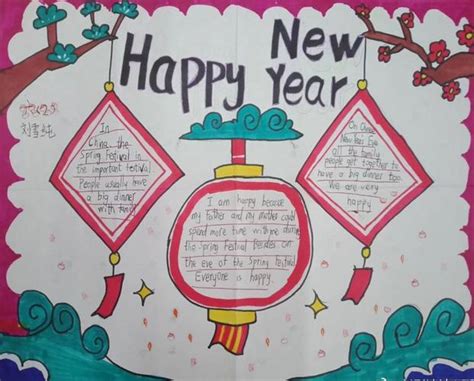 Happy New Year
刘雪纯
In
China the
Spring Festival is
the important festival
People usually have
a big dinner
with family
I am happy because
my father and my mother could
spend more time with me during
the Spring Festival Besides on
the eve of the Spring Festival
Everyone is happy.
On Chinese
New Year Eve
all the family
people get together to
have a big dinner too.
We are very
happy